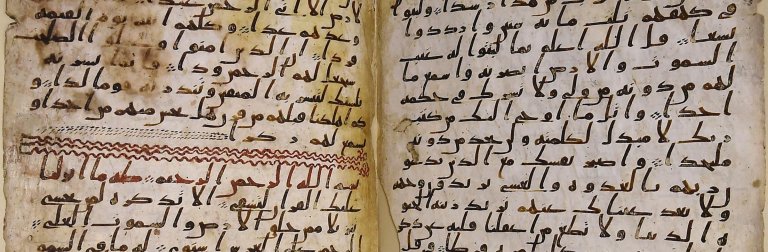 هذا رشدا ولبثوا
في كهفهم ثلث مائة سنين وازدادوا
تسعا قل الله اعلم بما لبثوا له غيب
السموت والارض ابصر به واسمع ما
لهم من دونه من ولي ولا يشرك في حكمه
احدا واتل ما اوحي اليك من كتب
ربك لا مبدل لكلمته ولن تجد من دونه
ملتحدا واصبر نفسك مع الذين يدعو
ن ربهم بالغدوة والعشي يريدون وجهه
ولا تعد عيناك عنهم تريد زينة الحيو
ة الدنيا ولا تطع من اغفلنا قلبه عن ذ
فرطا وقل
لارض الا اتي الرحمن عبدا لقد
وعدهم عدا وكلهم اتيه يوم القيمة
فردا ان الذين امنوا وعملوا الصلحت
سيجعل لهم الرحمن ودا فانما يسرنه
بلسنك لتبشر به المتقين وتنذر به قوما لدا و
كم اهلكنا قبلهم من قرن هل تحس منهم من احد او
تسمع لهم ركزا
بسم الله الرحمن الرحيم طه ما انزلنا
عليك القران لتشقى الا تذكرة لمن يخشى
تنزيلا ممن خلق الارض والسموت العلى
الرحمن على العرش استوى له ما في السمو